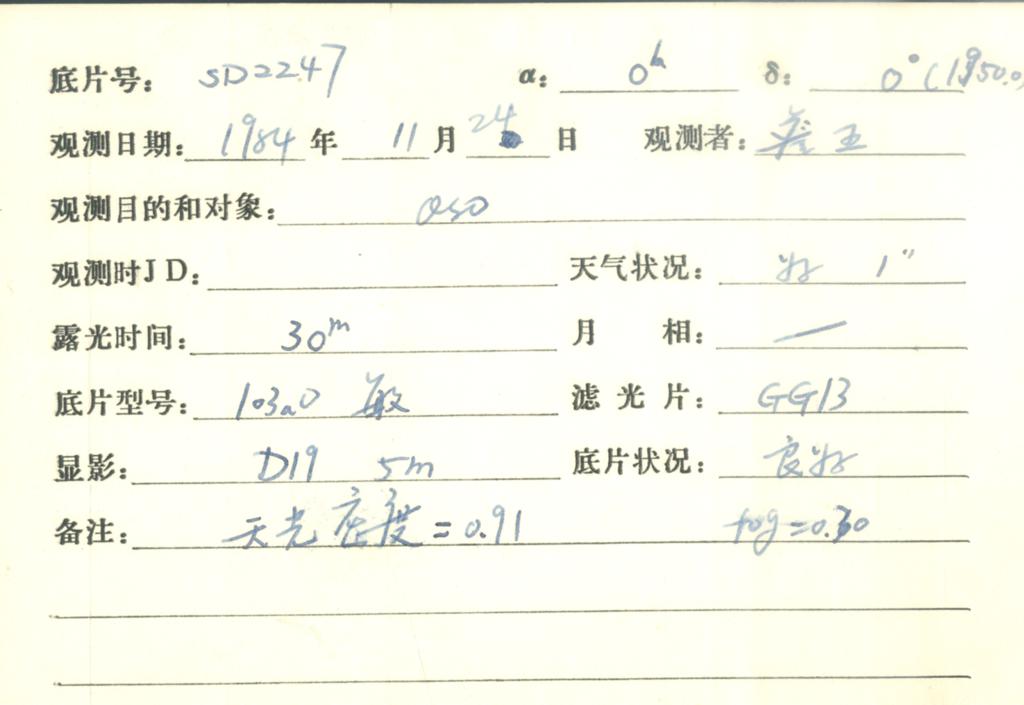 底片号: SD2247 α: 0ʰ δ: 0°(1950.0)
观测日期: 1984 年 11 月 24 日 观测者: 王
观测目的和对象: QSO
观测时JD: 天气状况: 好 1″
露光时间: 30ᵐ 月 相: —
底片型号: 103aO 敏 滤光片: GG13
显影: D19 5m 底片状况: 良好
备注: 天光密度=0.91 fog=0.30